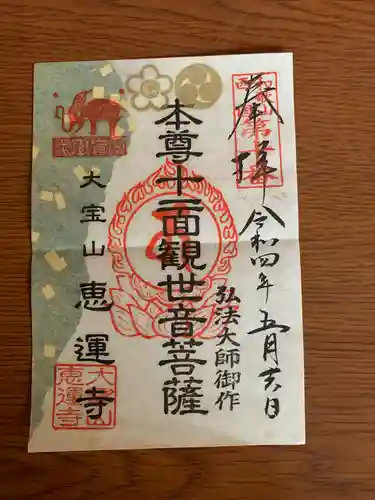 奉拝
令和四年五月廿六日
弘法大師御作
本尊十一面観世音菩薩
大宝山恵運寺
大宝山
恵運寺